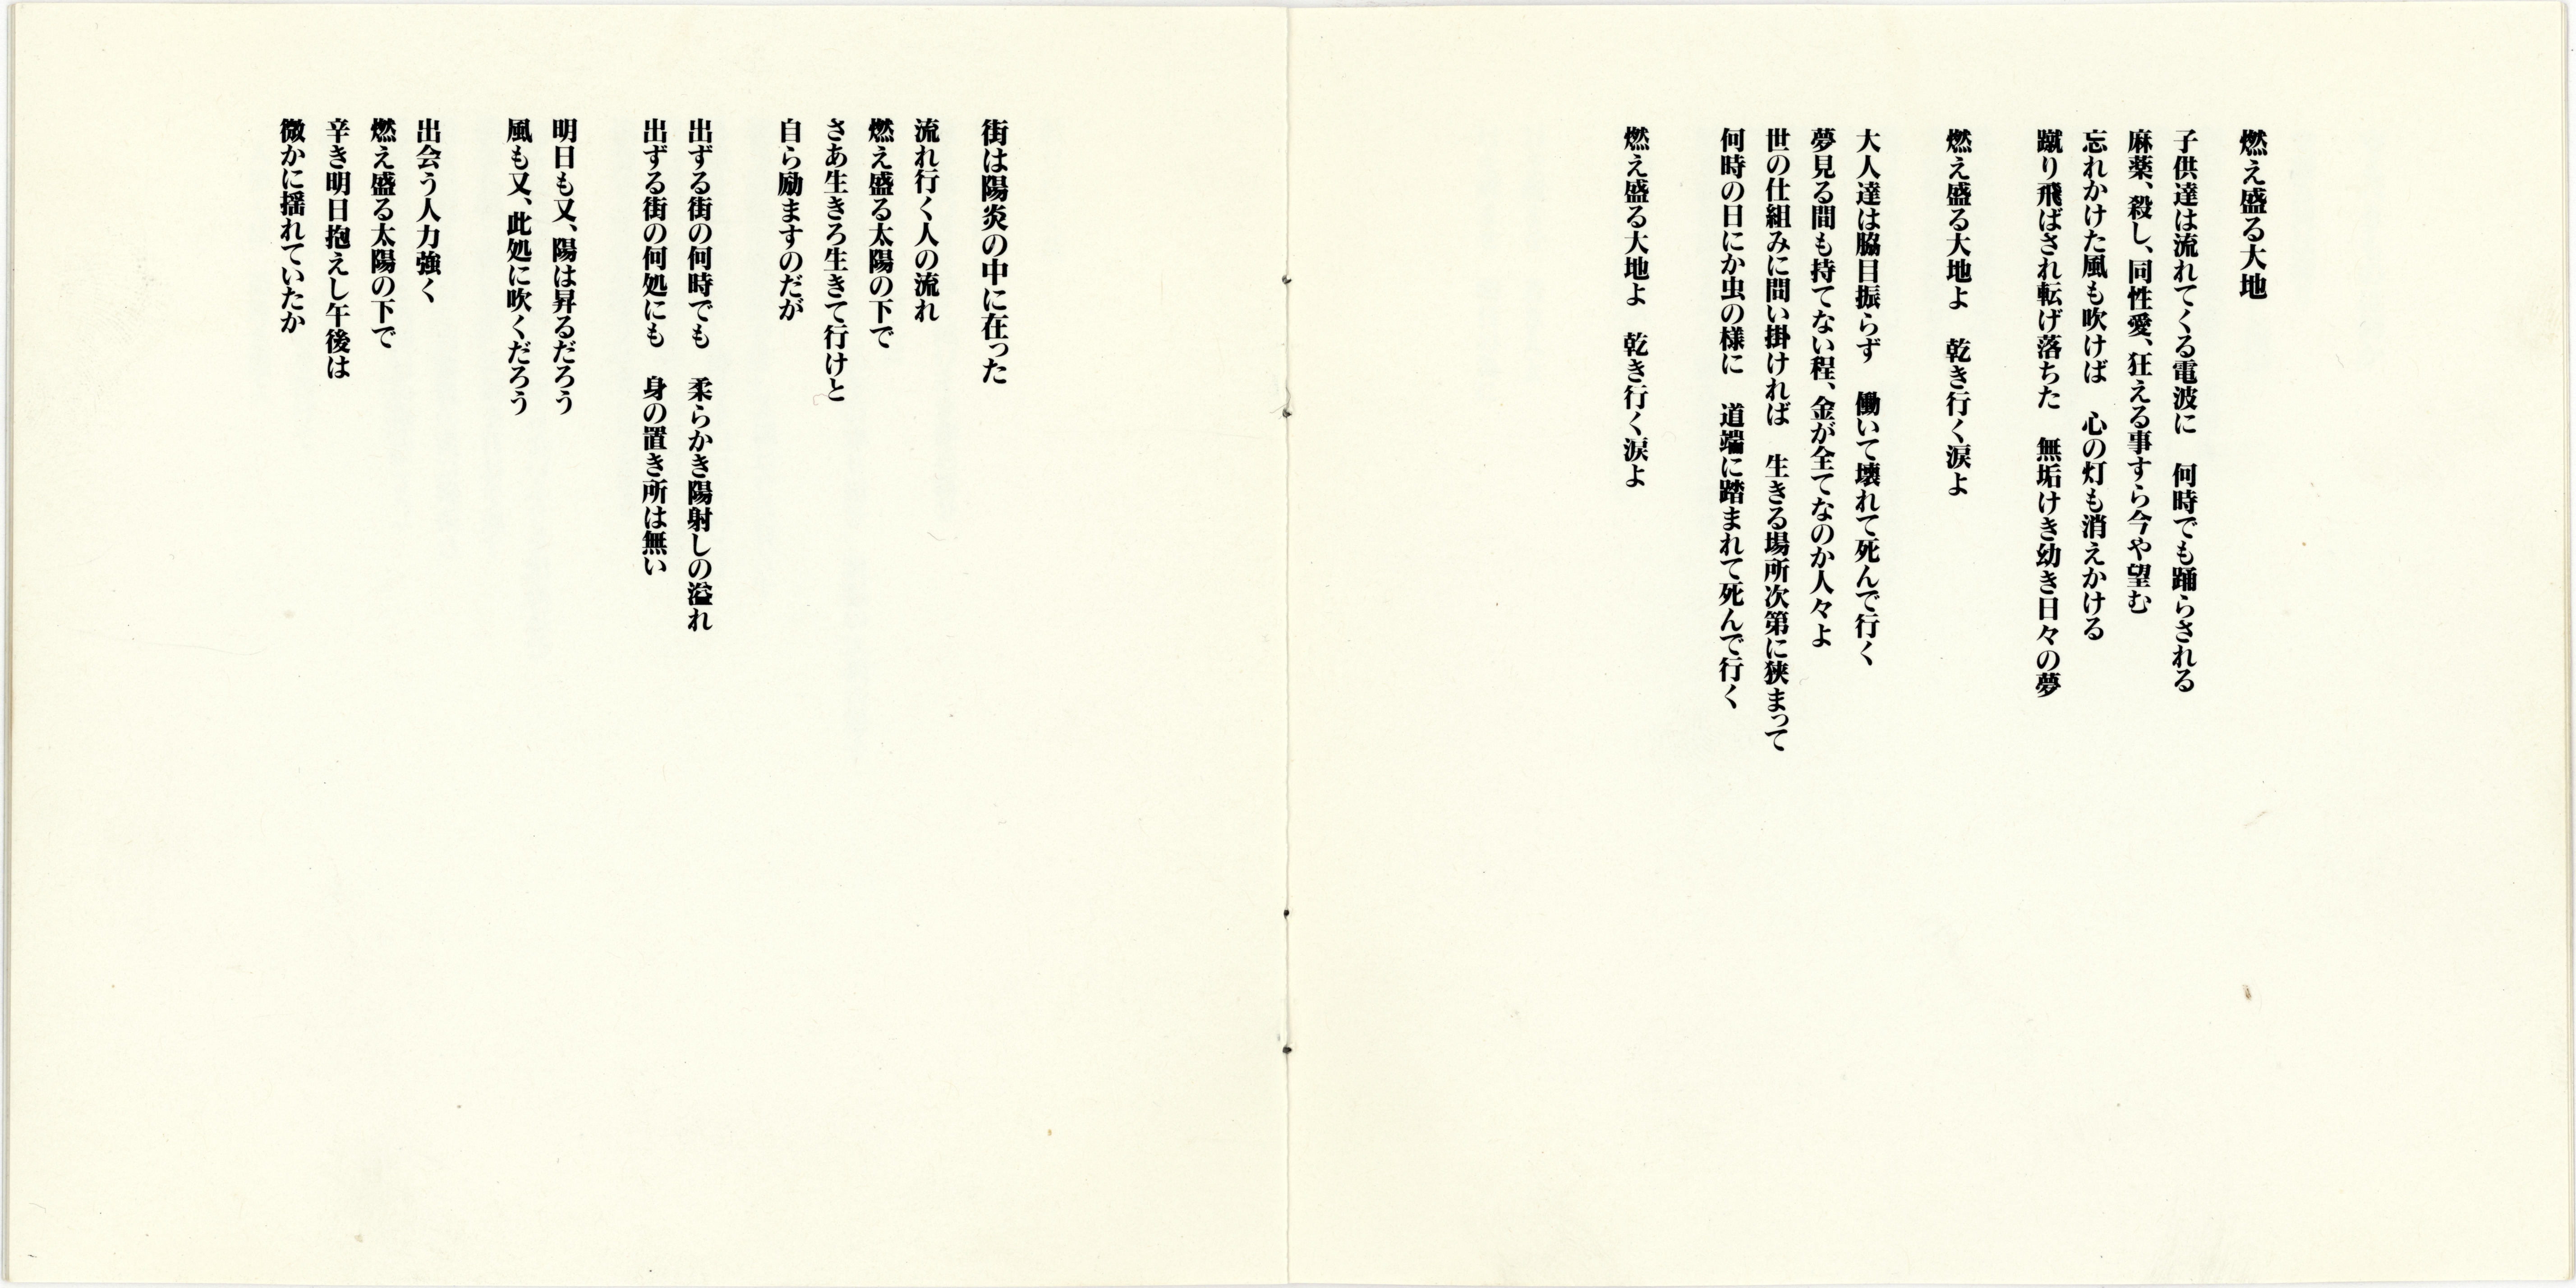 燃え盛る大地
子供達は流れてくる電波に　何時でも踊らされる
麻薬、殺し、同性愛、狂える事すら今や望む
忘れかけた風も吹けば　心の灯も消えかける
蹴り飛ばされ転げ落ちた　無垢けき幼き日々の夢
燃え盛る大地よ　乾き行く涙よ
大人達は脇目振らず　働いて壊れて死んで行く
夢見る間も持てない程、金が全てなのか人々よ
世の仕組みに問い掛ければ　生きる場所次第に狭まって
何時の日にか虫の様に　道端に踏まれて死んで行く
燃え盛る大地よ　乾き行く涙よ
街は陽炎の中に在った
流れ行く人の流れ
燃え盛る太陽の下で
さあ生きろ生きて行けと
自ら励ますのだが
出ずる街の何時でも　柔らかき陽射しの溢れ
出ずる街の何処にも　身の置き所は無い
明日も又、陽は昇るだろう
風も又、此処に吹くだろう
出会う人力強く
燃え盛る太陽の下で
辛き明日抱えし午後は
微かに揺れていたか